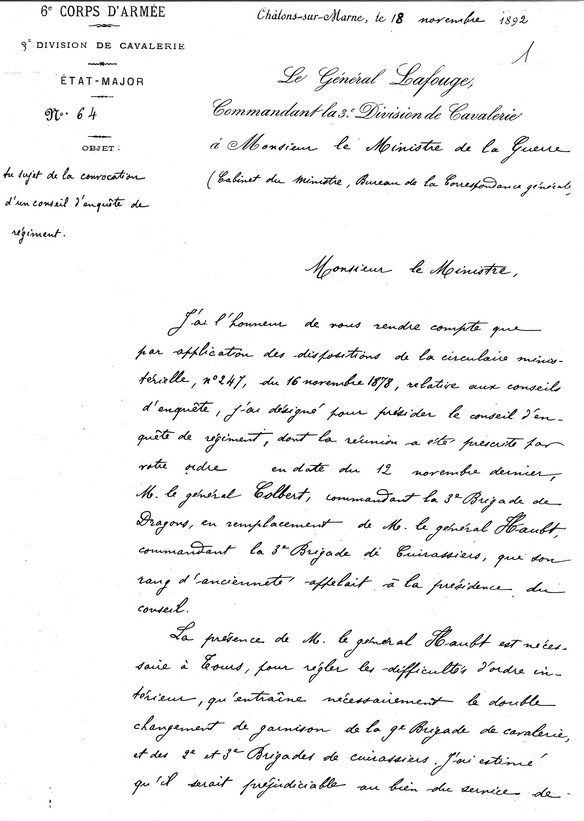 6e CORPS D'ARMÉE
3e DIVISION DE CAVALERIE
ÉTAT-MAJOR
No. 64
OBJET:
Au sujet de la convocation
d'un conseil d'enquête de
régiment.
Châlons-sur-Marne, le 18 novembre 1892
1
Le Général Lafouge,
Commandant la 3e Division de Cavalerie
à Monsieur le Ministre de la Guerre
(Cabinet du Ministre, Bureau de la Correspondance générale)
Monsieur le Ministre,
J'ai l'honneur de vous rendre compte que
par application des dispositions de la circulaire minis-
térielle, no 247, du 16 novembre 1878, relative aux conseils
d'enquête, j'ai désigné pour présider le conseil d'en-
quête de régiment, dont la réunion a été prescrite par
votre ordre en date du 12 novembre dernier,
M. le général Colbert, commandant la 3e Brigade de
Dragons, en remplacement de M. le général Haubt,
commandant la 3e Brigade de Cuirassiers, que son
rang d'ancienneté appelait à la présidence du
conseil.
La présence de M. le général Haubt est néces-
saire à Tours, pour régler les difficultés d'ordre in-
térieur, qu'entraîne nécessairement le double
changement de garnison de la 9e Brigade de cavalerie,
et des 2e et 3e Brigades de cuirassiers. J'ai estimé
qu'il serait préjudiciable au bien du service de